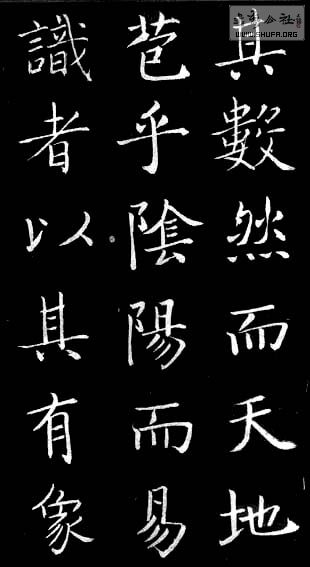 其數然而天地
苞乎陰陽而易
識者以其有象
WWW.SHUFA.ORG